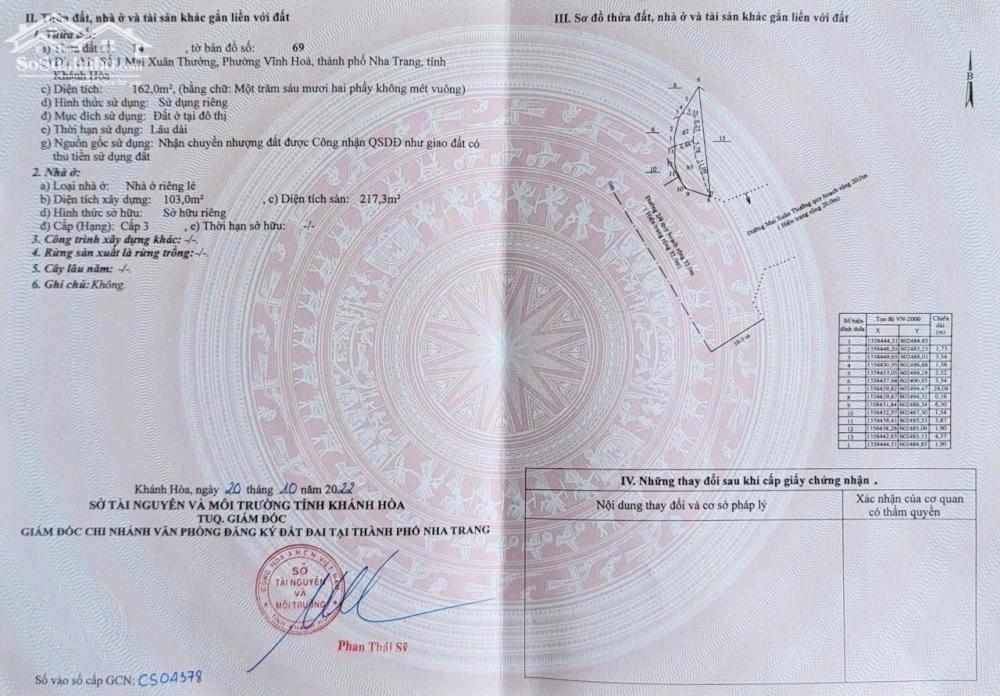 II. Thửa đất, nhà ở và tài sản khác gắn liền với đất
1. Thửa đất:
a) Thửa đất số: 14 , tờ bản đồ số: 69
Số 1 Mai Xuân Thưởng, Phường Vĩnh Hoà, thành phố Nha Trang, tỉnh
Khánh Hòa
c) Diện tích: 162,0m², (bằng chữ: Một trăm sáu mươi hai phẩy không mét vuông)
d) Hình thức sử dụng: Sử dụng riêng
đ) Mục đích sử dụng: Đất ở tại đô thị
e) Thời hạn sử dụng: Lâu dài
g) Nguồn gốc sử dụng: Nhận chuyển nhượng đất được Công nhận QSDĐ như giao đất có
thu tiền sử dụng đất
2. Nhà ở:
a) Loại nhà ở: Nhà ở riêng lẻ
b) Diện tích xây dựng: 103,0m² , c) Diện tích sàn: 217,3m²
d) Hình thức sở hữu: Sở hữu riêng
đ) Cấp (Hạng): Cấp 3 , e) Thời hạn sở hữu: -/-
3. Công trình xây dựng khác: -/-.
4. Rừng sản xuất là rừng trồng:-/-.
5. Cây lâu năm: -/-.
6. Ghi chú: Không.
Khánh Hòa, ngày 20 tháng 10 năm 2022
SỞ TÀI NGUYÊN VÀ MÔI TRƯỜNG TỈNH KHÁNH HÒA
TUQ. GIÁM ĐỐC
GIÁM ĐỐC CHI NHÁNH VĂN PHÒNG ĐĂNG KÝ ĐẤT ĐAI TẠI THÀNH PHỐ NHA TRANG
SỞ
TÀI NGUYÊN
VÀ
MÔI TRƯỜNG
Phan Thái Sỹ
Số vào sổ cấp GCN: CS04378
III. Sơ đồ thửa đất, nhà ở và tài sản khác gắn liền với đất
B
Đường Mai Xuân Thưởng quy hoạch rộng 20,0m
( Hiện trạng rộng 20,0m)
Đường 2/4 quy hoạch rộng 32,0m
( Hiện trạng rộng 32,0m)
16.0 m
Số hiệu đỉnh thửa Tọa độ VN-2000 Chiều dài (m)
X Y
1 1358444,51 602484,85
2 1358446,20 602485,23 1,73
3 1358449,65 602486,01 3,54
4 1358450,95 602486,88 1,56
5 1358453,05 602488,28 2,52
6 1358457,68 602490,95 5,34
7 1358429,82 602494,47 28,08
8 1358429,87 602494,32 0,16
9 1358431,84 602488,34 6,30
10 1358432,97 602487,30 1,54
11 1358436,41 602485,53 3,87
12 1358438,26 602485,09 1,90
13 1358442,63 602485,13 4,37
1 1358444,51 602484,85 1,90
IV. Những thay đổi sau khi cấp giấy chứng nhận .
Nội dung thay đổi và cơ sở pháp lý
Xác nhận của cơ quan
có thẩm quyền